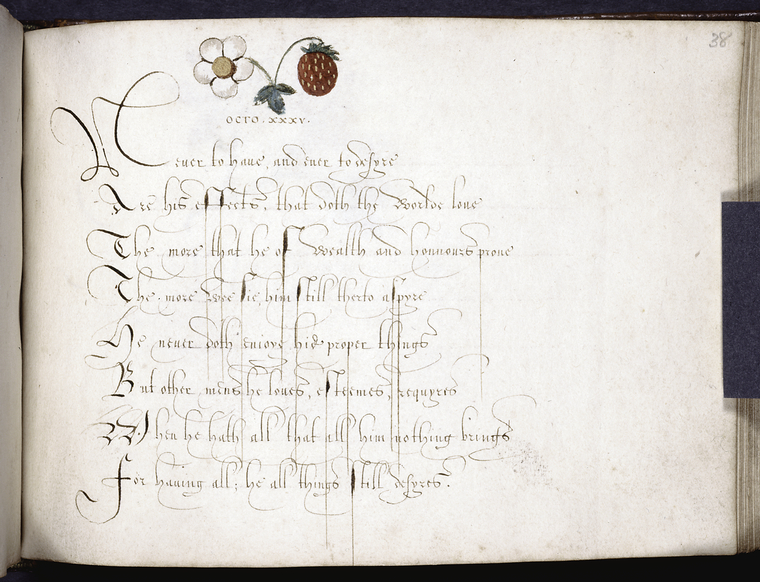 38
OCTO · XXXV ·
Never to have, and ever to desyre
Are his effects, that doth the Worlde love
The more that he of Wealth and honnours prove
The more Woe sie, him still therto aspyre
He never doth enioye his proper things
But other mens he loves, esteemes, requyres
When he hath all that all him nothing brings
For having all; he all things still desyres.